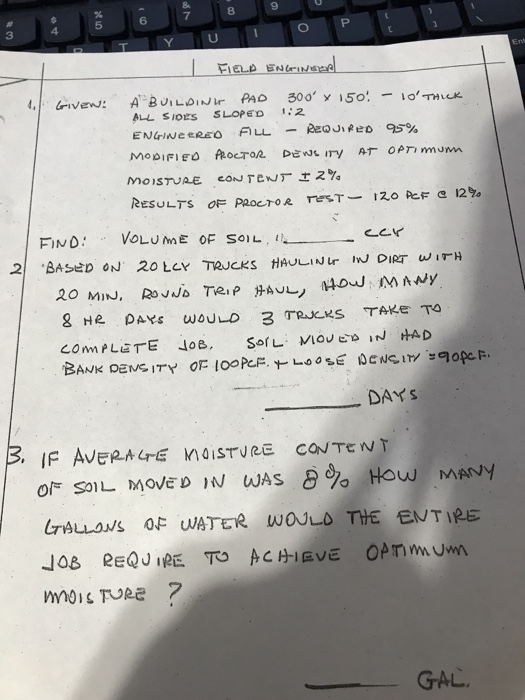 # 3
$ 4
% 5
6
& 7
8
9
T
Y
U
I
O
P
FIELD ENGINEER
1. GIVEN: A BUILDING PAD 300' x 150'. - 10' THICK
ALL SIDES SLOPED 1:2
ENGINEERED FILL - REQUIRED 95%
MODIFIED PROCTOR DENSITY AT OPTIMUM
MOISTURE CONTENT ± 2%
RESULTS OF PROCTOR TEST - 120 PCF @ 12%
FIND: VOLUME OF SOIL, CCY
2 BASED ON 20 LCY TRUCKS HAULING IN DIRT WITH
20 MIN. ROUND TRIP HAUL, HOW MANY
8 HR DAYS WOULD 3 TRUCKS TAKE TO
COMPLETE JOB. SOIL MOVED IN HAD
BANK DENSITY OF 100 PCF. + LOOSE DENSITY = 90 PCF.
DAYS
3. IF AVERAGE MOISTURE CONTENT
OF SOIL MOVED IN WAS 8% HOW MANY
GALLONS OF WATER WOULD THE ENTIRE
JOB REQUIRE TO ACHIEVE OPTIMUM
MOISTURE ?
GAL.